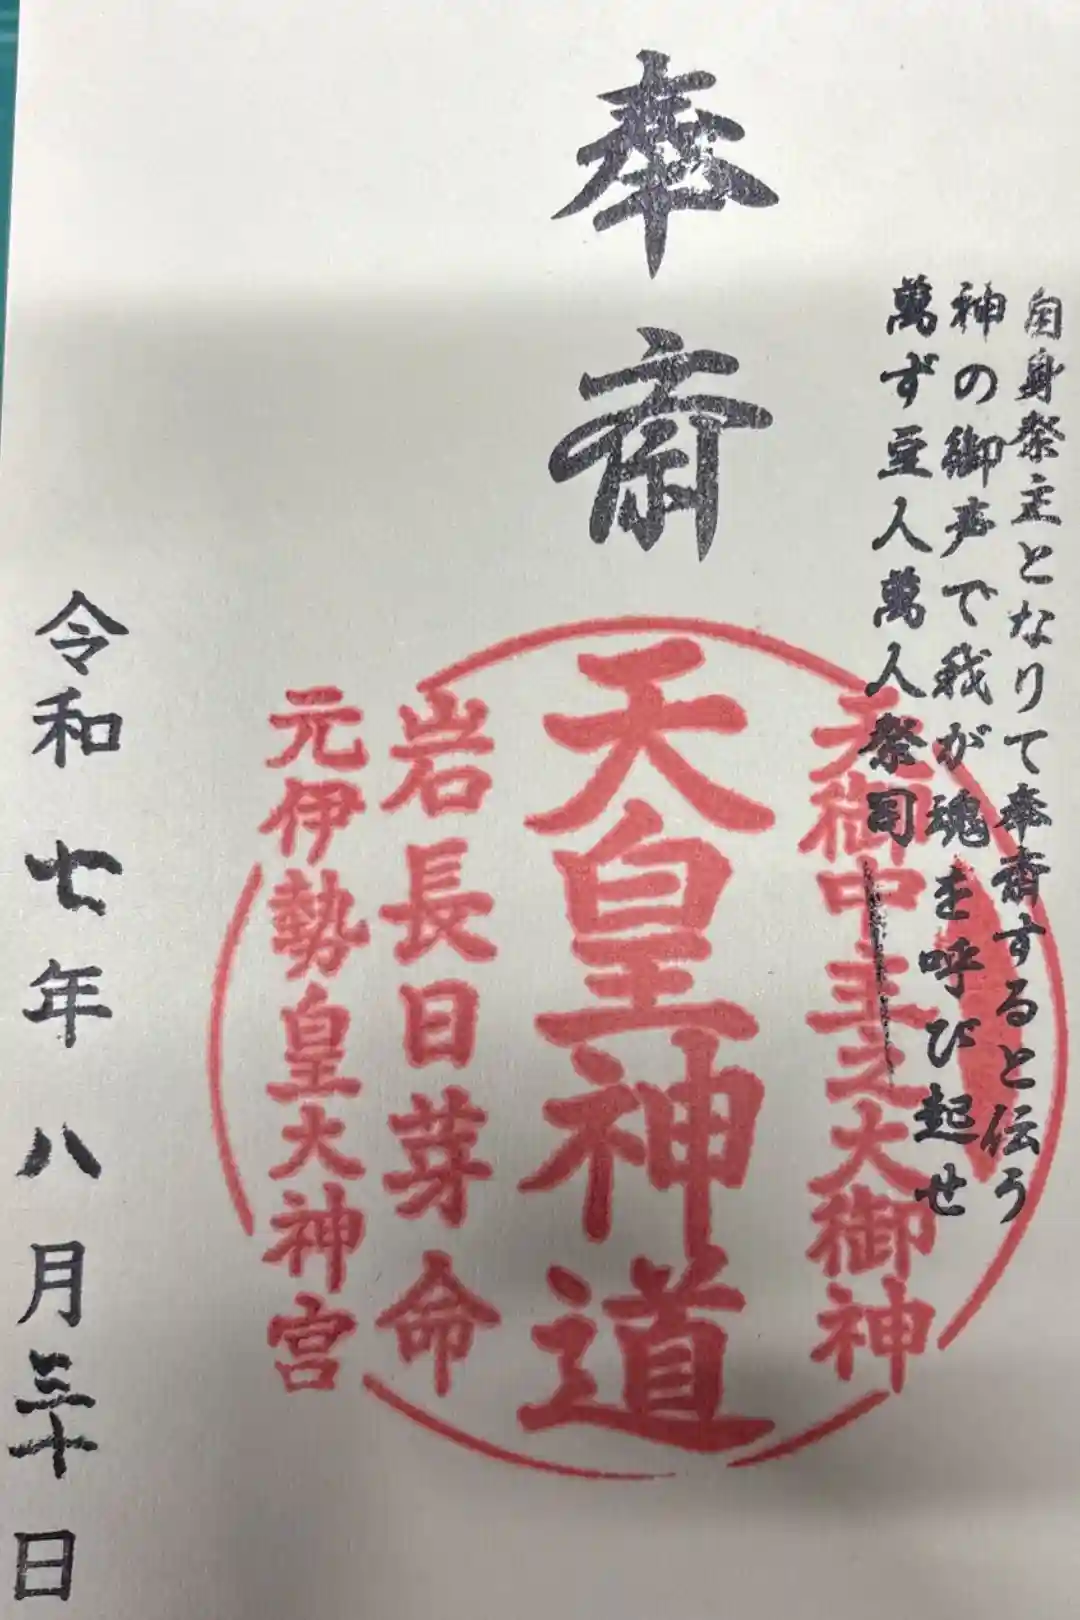 自身祭主となりて奉斎すると伝う
神の御声で我が魂を呼び起せ
萬ず豆人萬人祭司
奉斎
天御中主之大御神
天皇神道
岩長日芽命
元伊勢皇大神宮
令和七年八月三十日